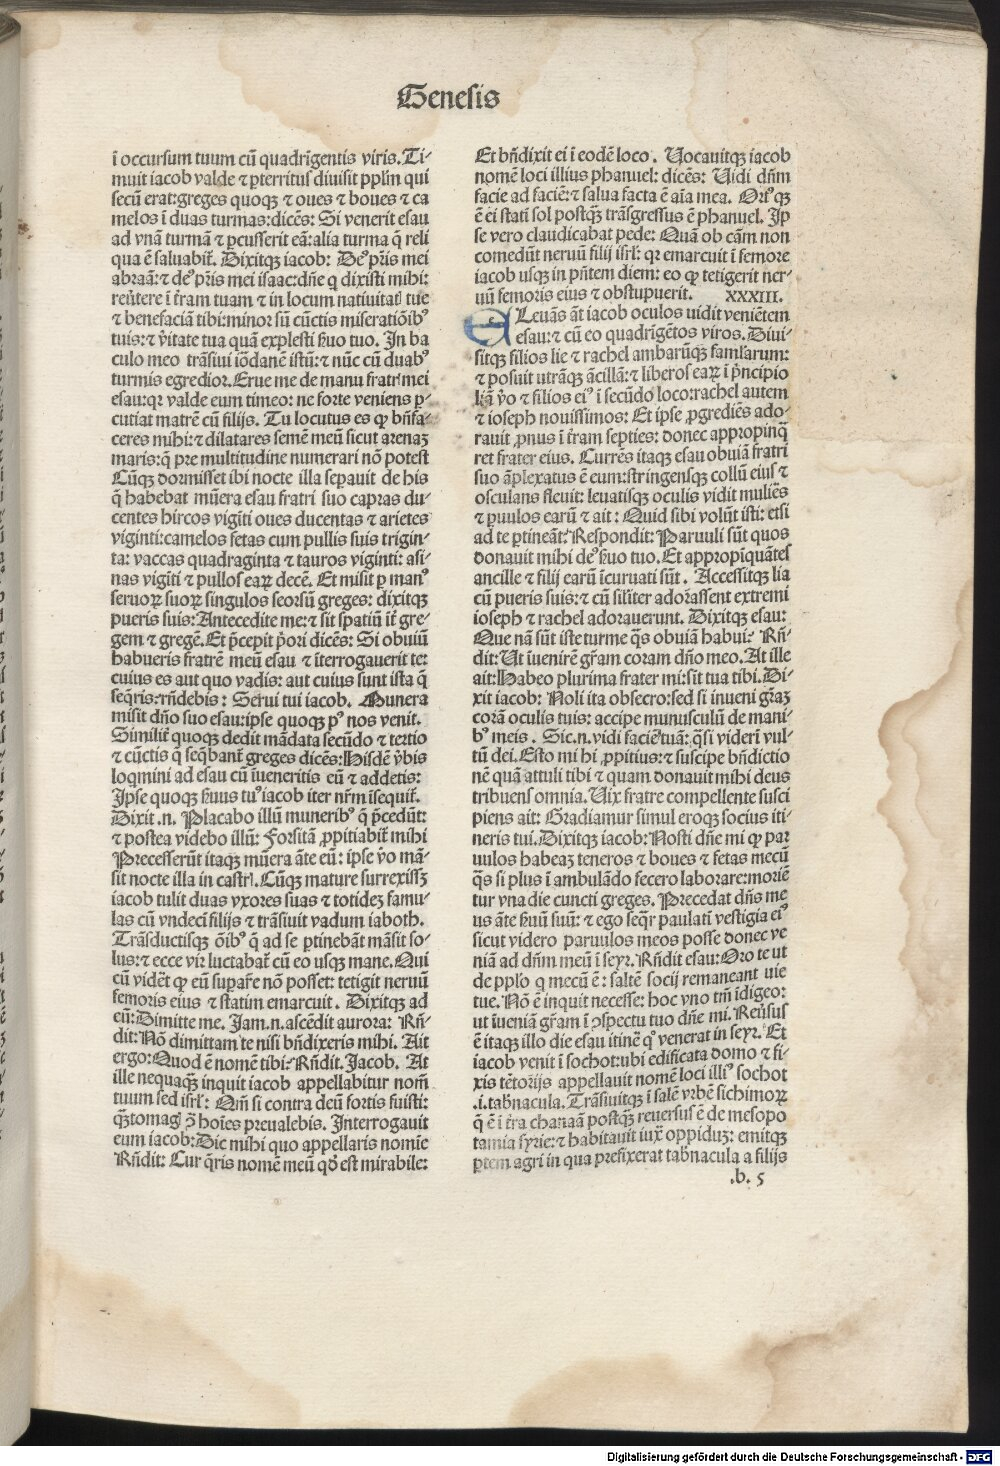 Genesis
ī occursum tuum cū quadrīgentis viris. Ti-
muit iacob valde ⁊ ꝑterritus diuisit pplīn qui
secū erat: greges quoqꝫ ⁊ oues ⁊ boues ⁊ ca
melos ī duas turmas: dicēs: Si venerit esau
ad vnā turmā ⁊ ꝑcusserit eā: alia turma q̄ reli
qua ē saluabit̄. Dixitqꝫ iacob: De⁹ pr̄is mei
abraā: ⁊ de⁹ pr̄is mei isaac: dn̄e q dixisti mihi:
reūtere ī t̄ram tuam ⁊ in locum natiuitat̄ tue
⁊ benefaciā tibi: minor sū cūctis miseratiōib⁹
tuis: ⁊ v̄itate tua quā explesti ẜuo tuo. In ba
culo meo trāsiui iōdanē istū: ⁊ nūc cū duab⁹
turmis egredior. Erue me de manu fratr̄ mei
esau: qꝛ valde eum timeo: ne forte veniens ꝑ-
cutiat matrē cū filijs. Tu locutus es ꝙ bn̄fa-
ceres mihi: ⁊ dilatares semē meū sicut arenaꝫ
maris: q̄ pre multitudine numerari nō potest
Cūqꝫ dormisset ibi nocte illa sepauit de his
q̄ habebat mūera esau fratri suo capras du-
centes hircos vigīti oues ducentas ⁊ arietes
viginti: camelos fetas cum pullis suis trigin-
ta: vaccas quadraginta ⁊ tauros viginti: asi-
nas vigīti ⁊ pullos eaꝝ decē. Et misit ꝑ man⁹
seruoꝝ suoꝝ singulos seorsū greges: dixitqꝫ
pueris suis: Antecedite me: ⁊ sit spatiū īt̄ gre-
gem ⁊ gregē. Et p̄cepit p̄ori dicēs: Si obuiū
habueris fratrē meū esau ⁊ īterrogauerit te:
cuius es aut quo vadis: aut cuius sunt ista q̄
seq̄ris: rn̄debis: Serui tui iacob. Munera
misit dn̄o suo esau: ipse quoqꝫ p⁹ nos venit.
Similit̄ quoqꝫ dedit mādata secūdo ⁊ tertio
⁊ cūctis q̄ seq̄bant̄ greges dicēs: Hisdē v̄bis
loqmini ad esau cū īueneritis eū ⁊ addetis:
Ipse quoqꝫ ẜuus tu⁹ iacob iter nr̄m īsequit̄.
Dixit .n. Placabo illū munerib⁹ q̄ p̄cedūt:
⁊ postea videbo illū: Forsitā ꝓpitiabit̄ mihi
Precesserūt itaqꝫ mūera āte eū: ipse v̄o mā-
sit nocte illa in castr̄. Cūqꝫ mature surrexissꝫ
iacob tulit duas vxores suas ⁊ totidez famu-
las cū vndecī filijs ⁊ trāsiuit vadum iaboth.
Trāsductisqꝫ ōib⁹ q̄ ad se ꝑtinebāt māsit so-
lus: ⁊ ecce vir luctabat̄ cū eo usqꝫ mane. Qui
cū vidēt ꝙ eū suꝑare nō posset: tetigit neruū
femoris eius ⁊ statim emarcuit. Dixitqꝫ ad
eū: Dimitte me. Jam .n. ascēdit aurora: Rn̄-
dit: Nō dimittam te nisi bn̄dixeris mihi. Ait
ergo: Quod ē nomē tibi: Rn̄dit. Jacob. At
ille nequaꝙ̄ inquit iacob appellabitur nom̄
tuum sed isrl̄: Qm̄ si contra deū fortis fuisti:
hoīes preualebis. Interrogauit
eum iacob: Dic mihi quo appellaris nomīe
Rn̄dit: Cur q̄ris nomē meū qđ est mirabile:
Et bn̄dixit ei ī eodē loco. Uocauitqꝫ iacob
nomē loci illius phanuel: dicēs: Uidi dn̄m
facie ad faciē: ⁊ salua facta ē aīa mea. Ort⁹ qꝫ
ē ei stati sol postꝙ̄ trāsgressus ē phanuel. Ip
se vero claudicabat pede: Quā ob cām non
comedūt neruū filij isrl̄: qꝛ emarcuit ī femore
iacob usqꝫ in pn̄tem diem: eo ꝙ tetigerit ner-
uū femoris eius ⁊ obstupuerit. XXXIII.
ELeuās āt iacob oculos uidit veniētem
esau: ⁊ cū eo quadrīgētos viros. Diui-
sitqꝫ filios lie ⁊ rachel ambarūqꝫ famlarum:
⁊ posuit utrāqꝫ ācillā: ⁊ liberos eaꝝ ī p̄ncipio
liā v̄o ⁊ filios ei⁹ ī secūdo loco: rachel autem
⁊ ioseph nouissimos: Et ipse ꝓgrediēs ado-
rauit ꝓnus ī t̄ram septies: donec appropinq̄
ret frater eius. Currēs itaqꝫ esau obuiā fratri
suo āplexatus ē eum: stringensqꝫ collū eius ⁊
osculans fleuit: leuatisqꝫ oculis vidit muliēs
⁊ ꝑuulos earū ⁊ ait: Quid sibi volūt isti: etsi
ad te ꝑtineāt: Respondit: Paruuli sūt quos
donauit mihi de⁹ ẜuo tuo. Et appropīquātes
ancille ⁊ filij earū īcuruati sūt. Accessitqꝫ lia
cū pueris suis: ⁊ cū siliter adorassent extremi
ioseph ⁊ rachel adorauerunt. Dixitqꝫ esau:
Que nā sūt iste turme q̄s obuiā habui: Rn̄-
dit: Ut īuenirē gr̄am coram dn̄o meo. At ille
ait: Habeo plurima frater mi: sīt tua tibi. Di-
xit iacob: Noli ita obsecro: sed si inueni gr̄aꝫ
corā oculis tuis: accipe munusculū de mani-
b⁹ meis. Sic .n. vidi faciē tuā: q̄si viderī vul-
tū dei. Esto mi hi ꝓpitius: ⁊ suscipe bn̄dictio
nē quā attuli tibi ⁊ quam donauit mihi deus
tribuens omnia. Uix fratre compellente susci
piens ait: Gradiamur simul eroqꝫ socius iti-
neris tui. Dixitqꝫ iacob: Nosti dn̄e mi ꝙ par
uulos habeaꝫ teneros ⁊ boues ⁊ fetas mecū
q̄s si plus ī ambulādo fecero laborare: moriē
tur vna die cuncti greges. Precedat dn̄s me
us āte ẜuū suū: ⁊ ego seq̄r paulatī vestigia ei⁹
sicut videro paruulos meos posse donec ve
niā ad dn̄m meū ī seyr. Rn̄dit esau: Oro te ut
de ppl̄o q mecū ē: saltē socij remaneant uie
tue. Nō ē inquit necesse: hoc vno tm̄ īdigeo:
ut īueniā gr̄am ī ꝯspectu tuo dn̄e mi. Reūsus
ē itaqꝫ illo die esau itinē q⁹ venerat in seyr. Et
iacob venit ī sochot: ubi edificata domo ⁊ fi-
xis tētorijs appellauit nomē loci illi⁹ sochot
.i. tab̄nacula. Trāsiuitqꝫ ī salē vrbē sichimoꝝ
q̄ ē ī t̄ra chanaā postꝙ̄ reuersus ē de mesopo
tamia syrie: ⁊ habitauit iux̄ oppiduꝫ: emitqꝫ
ꝑtem agri in qua prefixerat tab̄nacula a filijs
.b. 5
Digitalisierung gefördert durch die Deutsche Forschungsgemeinschaft - DFG